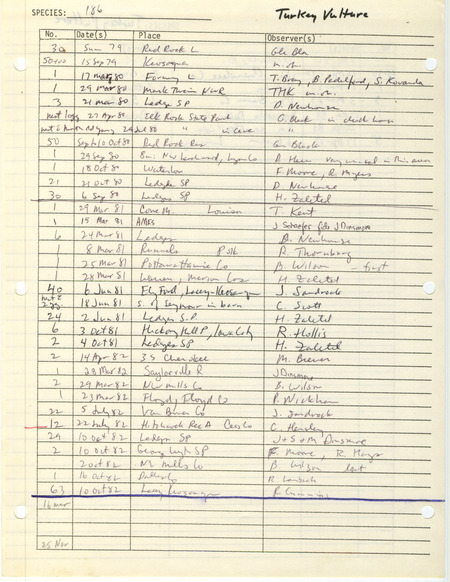 SPECIES: 186 Turkey Vulture
No. Date(s) Place Observer(s)
30 Sum 79 Red Rock L
15 Sep 79 Keosauqua
1 17 Mar 80 T. Bray, B. Padelford, S. Kovanda
1 29 Mar 80 Mark Twain NWR THK
3 21 Mar 80 Ledges SP D. Newhouse
27 Apr 80 Elk Rock State Park G. Black
24 Jul 80 in cave "
50 10 Oct 80 Red Rock Res Black
1 29 Sep 80 8 mi. NW Larchwood, Lyon Co very unusual in this area
1 18 Oct 80 Waterloo F. Moore, R. Myers
21 21 Oct 80 Ledges SP D. Newhouse
30 6 Sep 80 Ledges SP H. Zaletel
29 Mar 81 Cone M. Louisa T. Kent
1 15 Mar 81 AMES J Schaefer fide J Dinsmore
6 24 Mar 81 Ledges B. Newhouse
1 8 Mar 81 Runnels Polk R. Thornburg
1 25 Mar 81 Pottawattamie Co B. Wilson - first
1 28 Mar 81 Marion Co H Zaletel
40 6 Jun 81 Lacey-Keosauqua J. Sandrock
18 Jun 81 S. of Seymour in barn C. Scott
24 2 Jun 81 Ledges S.P. H. Zaletel
6 3 Oct 81 Hickory Hill P, Iowa City R. Hollis
2 4 Oct 81 Ledges SP H. Zaletel
2 14 Apr 82 3 S Cherokee M. Brewer
1 28 Mar 82 Saylorville R J Dinsmore
2 29 Mar 82 NW Mills Co B. Wilson
1 23 Mar 82 Floyd, Floyd Co P. Wickham
22 5 July 82 Van Buren Co J. Sandrock
12 22 July 82 Hitchcock Rec A Cass Co
29 10 Oct 82 Ledges SP J + S + M Dinsmore
2 10 Oct 82 George Wyth SP F Moore, R. Myers
2 Oct 82 NW Mills Co B Wilson last
1 16 Oct 82 Dallas Co
63 10 Oct 82 Lacey Keosauqua R Cummins
16 Mar
25 Nov